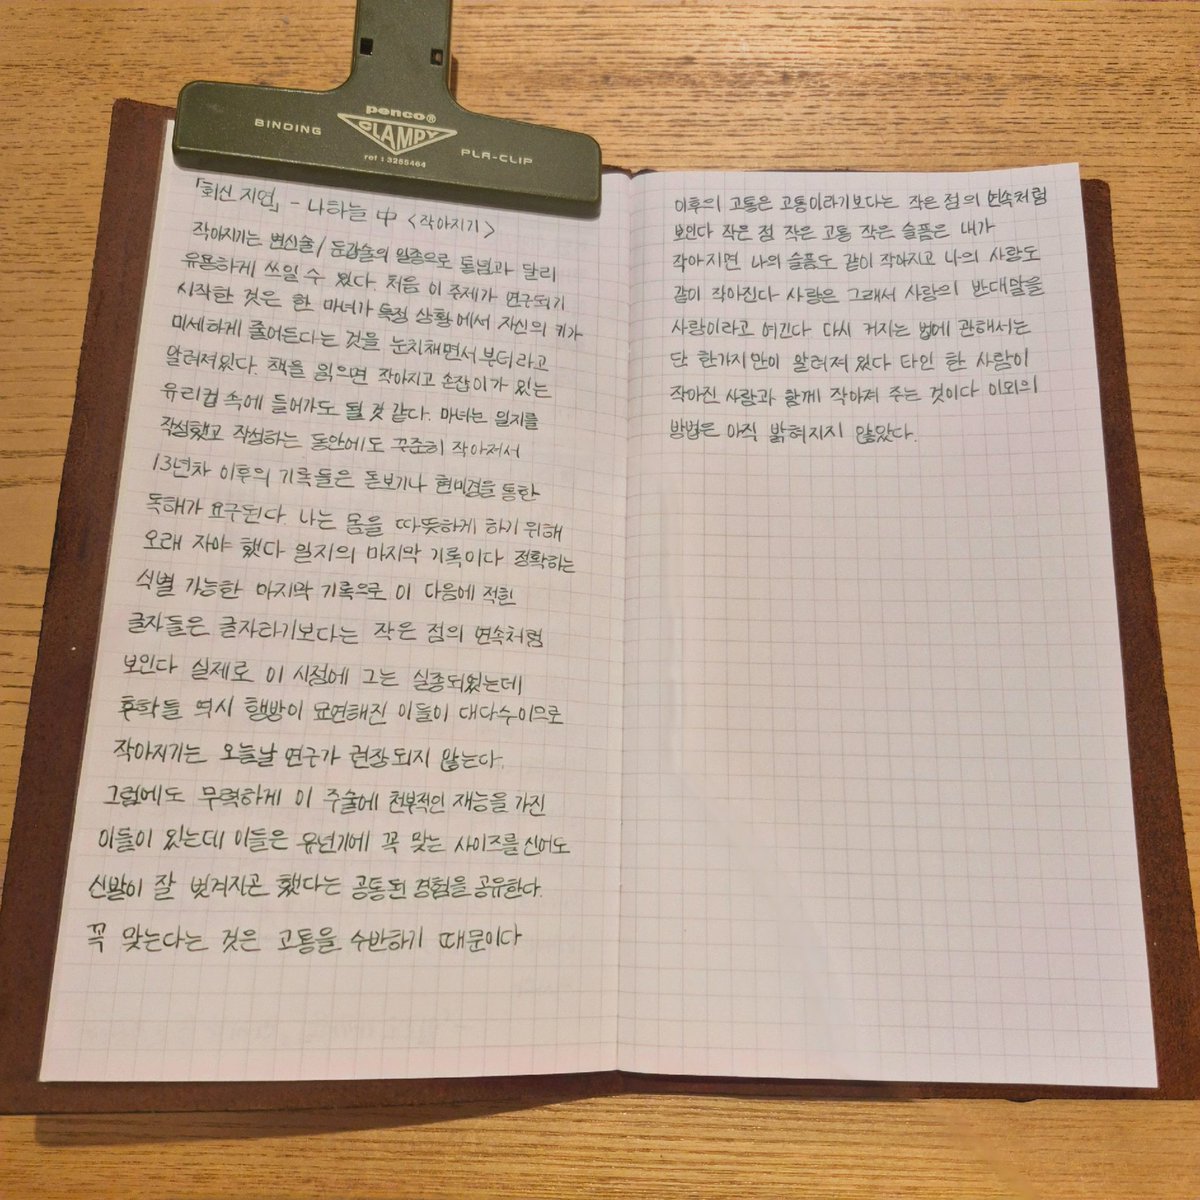 penco®
BINDING CLAMPY PLA-CLIP
ref : 3255464
「회신 지연」 - 나하늘 中 <작아지기>
작아지기는 변신술/둔갑술의 일종으로 통념과 달리
유용하게 쓰일 수 있다. 처음 이 주제가 연구되기
시작한 것은 한 마녀가 특정 상황에서 자신의 키가
미세하게 줄어든다는 것을 눈치채면서부터라고
알려져있다. 책을 읽으면 작아지고 손잡이가 있는
유리컵 속에 들어가도 될 것 같다. 마녀는 일지를
작성했고 작성하는 동안에도 꾸준히 작아져서
13년차 이후의 기록들은 돋보기나 현미경을 통한
독해가 요구된다. 나는 몸을 따뜻하게 하기 위해
오래 자야 했다 일지의 마지막 기록이다 정확하는
식별 가능한 마지막 기록으로 이 다음에 적힌
글자들은 글자라기보다는 작은 점의 연속처럼
보인다 실제로 이 시점에 그는 실종되었는데
후학들 역시 행방이 묘연해진 이들이 대다수이므로
작아지기는 오늘날 연구가 권장되지 않는다.
그럼에도 무력하게 이 주술에 천부적인 재능을 가진
이들이 있는데 이들은 유년기에 꼭 맞는 사이즈를 신어도
신발이 잘 벗겨지곤 했다는 공통된 경험을 공유한다.
꼭 맞는다는 것은 고통을 수반하기 때문이다
이후의 고통은 고통이라기보다는 작은 점의 연속처럼
보인다 작은 점 작은 고통 작은 슬픔은 내가
작아지면 나의 슬픔도 같이 작아지고 나의 사랑도
같이 작아진다 사랑은 그래서 사랑의 반대말을
사랑이라고 여긴다 다시 커지는 법에 관해서는
단 한가지만이 알려져 있다 타인 한 사람이
작아진 사람과 함께 작아져 주는 것이다 이외의
방법은 아직 밝혀지지 않았다.